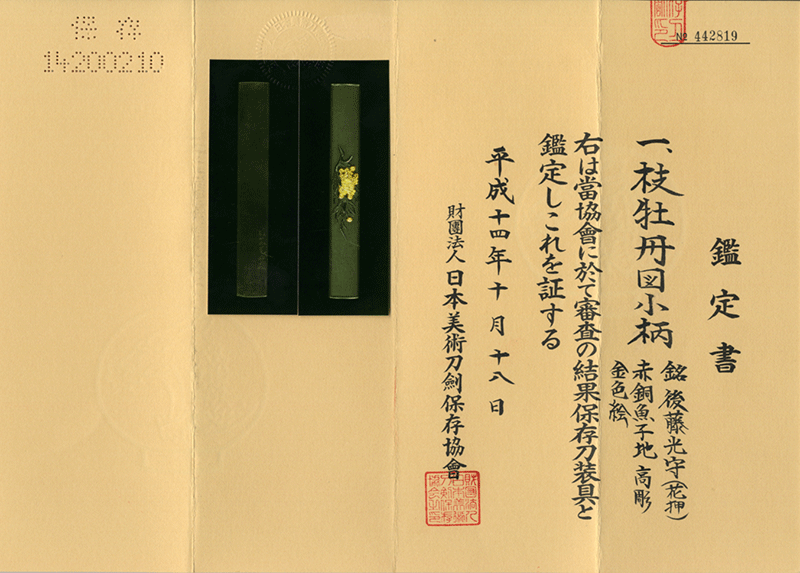 鑑定書
一、枝牡丹図小柄
銘 後藤光守(花押)
赤銅魚子地 高彫
金色絵
右は當協會に於て審査の結果保存刀装具と
鑑定しこれを証する
平成十四年十月十八日
財團法人 日本美術刀劍保存協會
№ 442819
保存
14200210